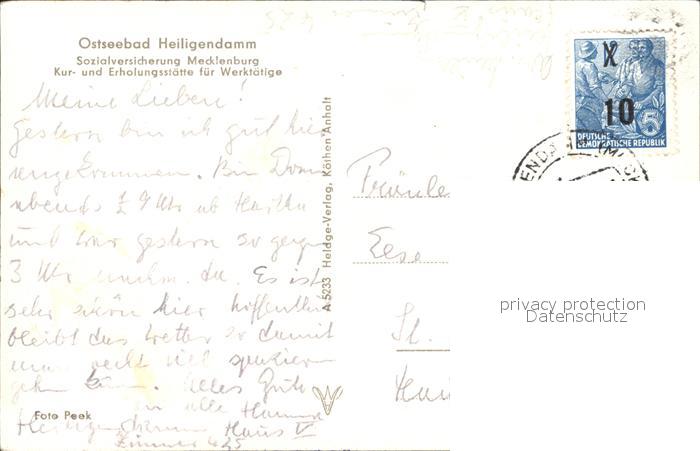 Ostseebad Heiligendamm
Sozialversicherung Mecklenburg
Kur- und Erholungsstätte für Werktätige
Meine Lieben!
Gestern bin ich gut hier
angekommen. Bin Donn
abends 1/2 9 Uhr ab Hartha
und war gestern so gegen
3 Uhr nachm. da. Es ist
sehr schön hier hoffentlich
bleibt das Wetter so damit
man recht viel spazieren
gehn kann. Alles Gute
an alle Hanna
Heiligendamm Haus V
Zimmer 425
Foto Peek
A 5233 Heldge-Verlag, Köthen-Anhalt
10
5
DEUTSCHE
DEMOKRATISCHE REPUBLIK
Fräule
Ese
St.
privacy protection
Datenschutz